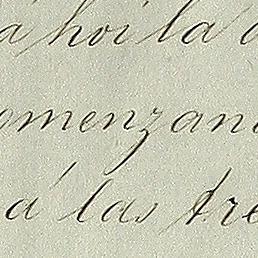 á hoi la
omenzan
á las tre